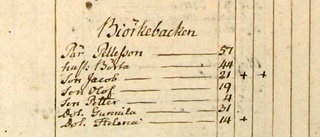 Biörkebacken
Pär Pellesson 57
hust. Börta 44
Son Jacob 21 + +
Son Olof 19
Son Petter 4
Dot. Gunnila 21
Dot. Helena 14 +